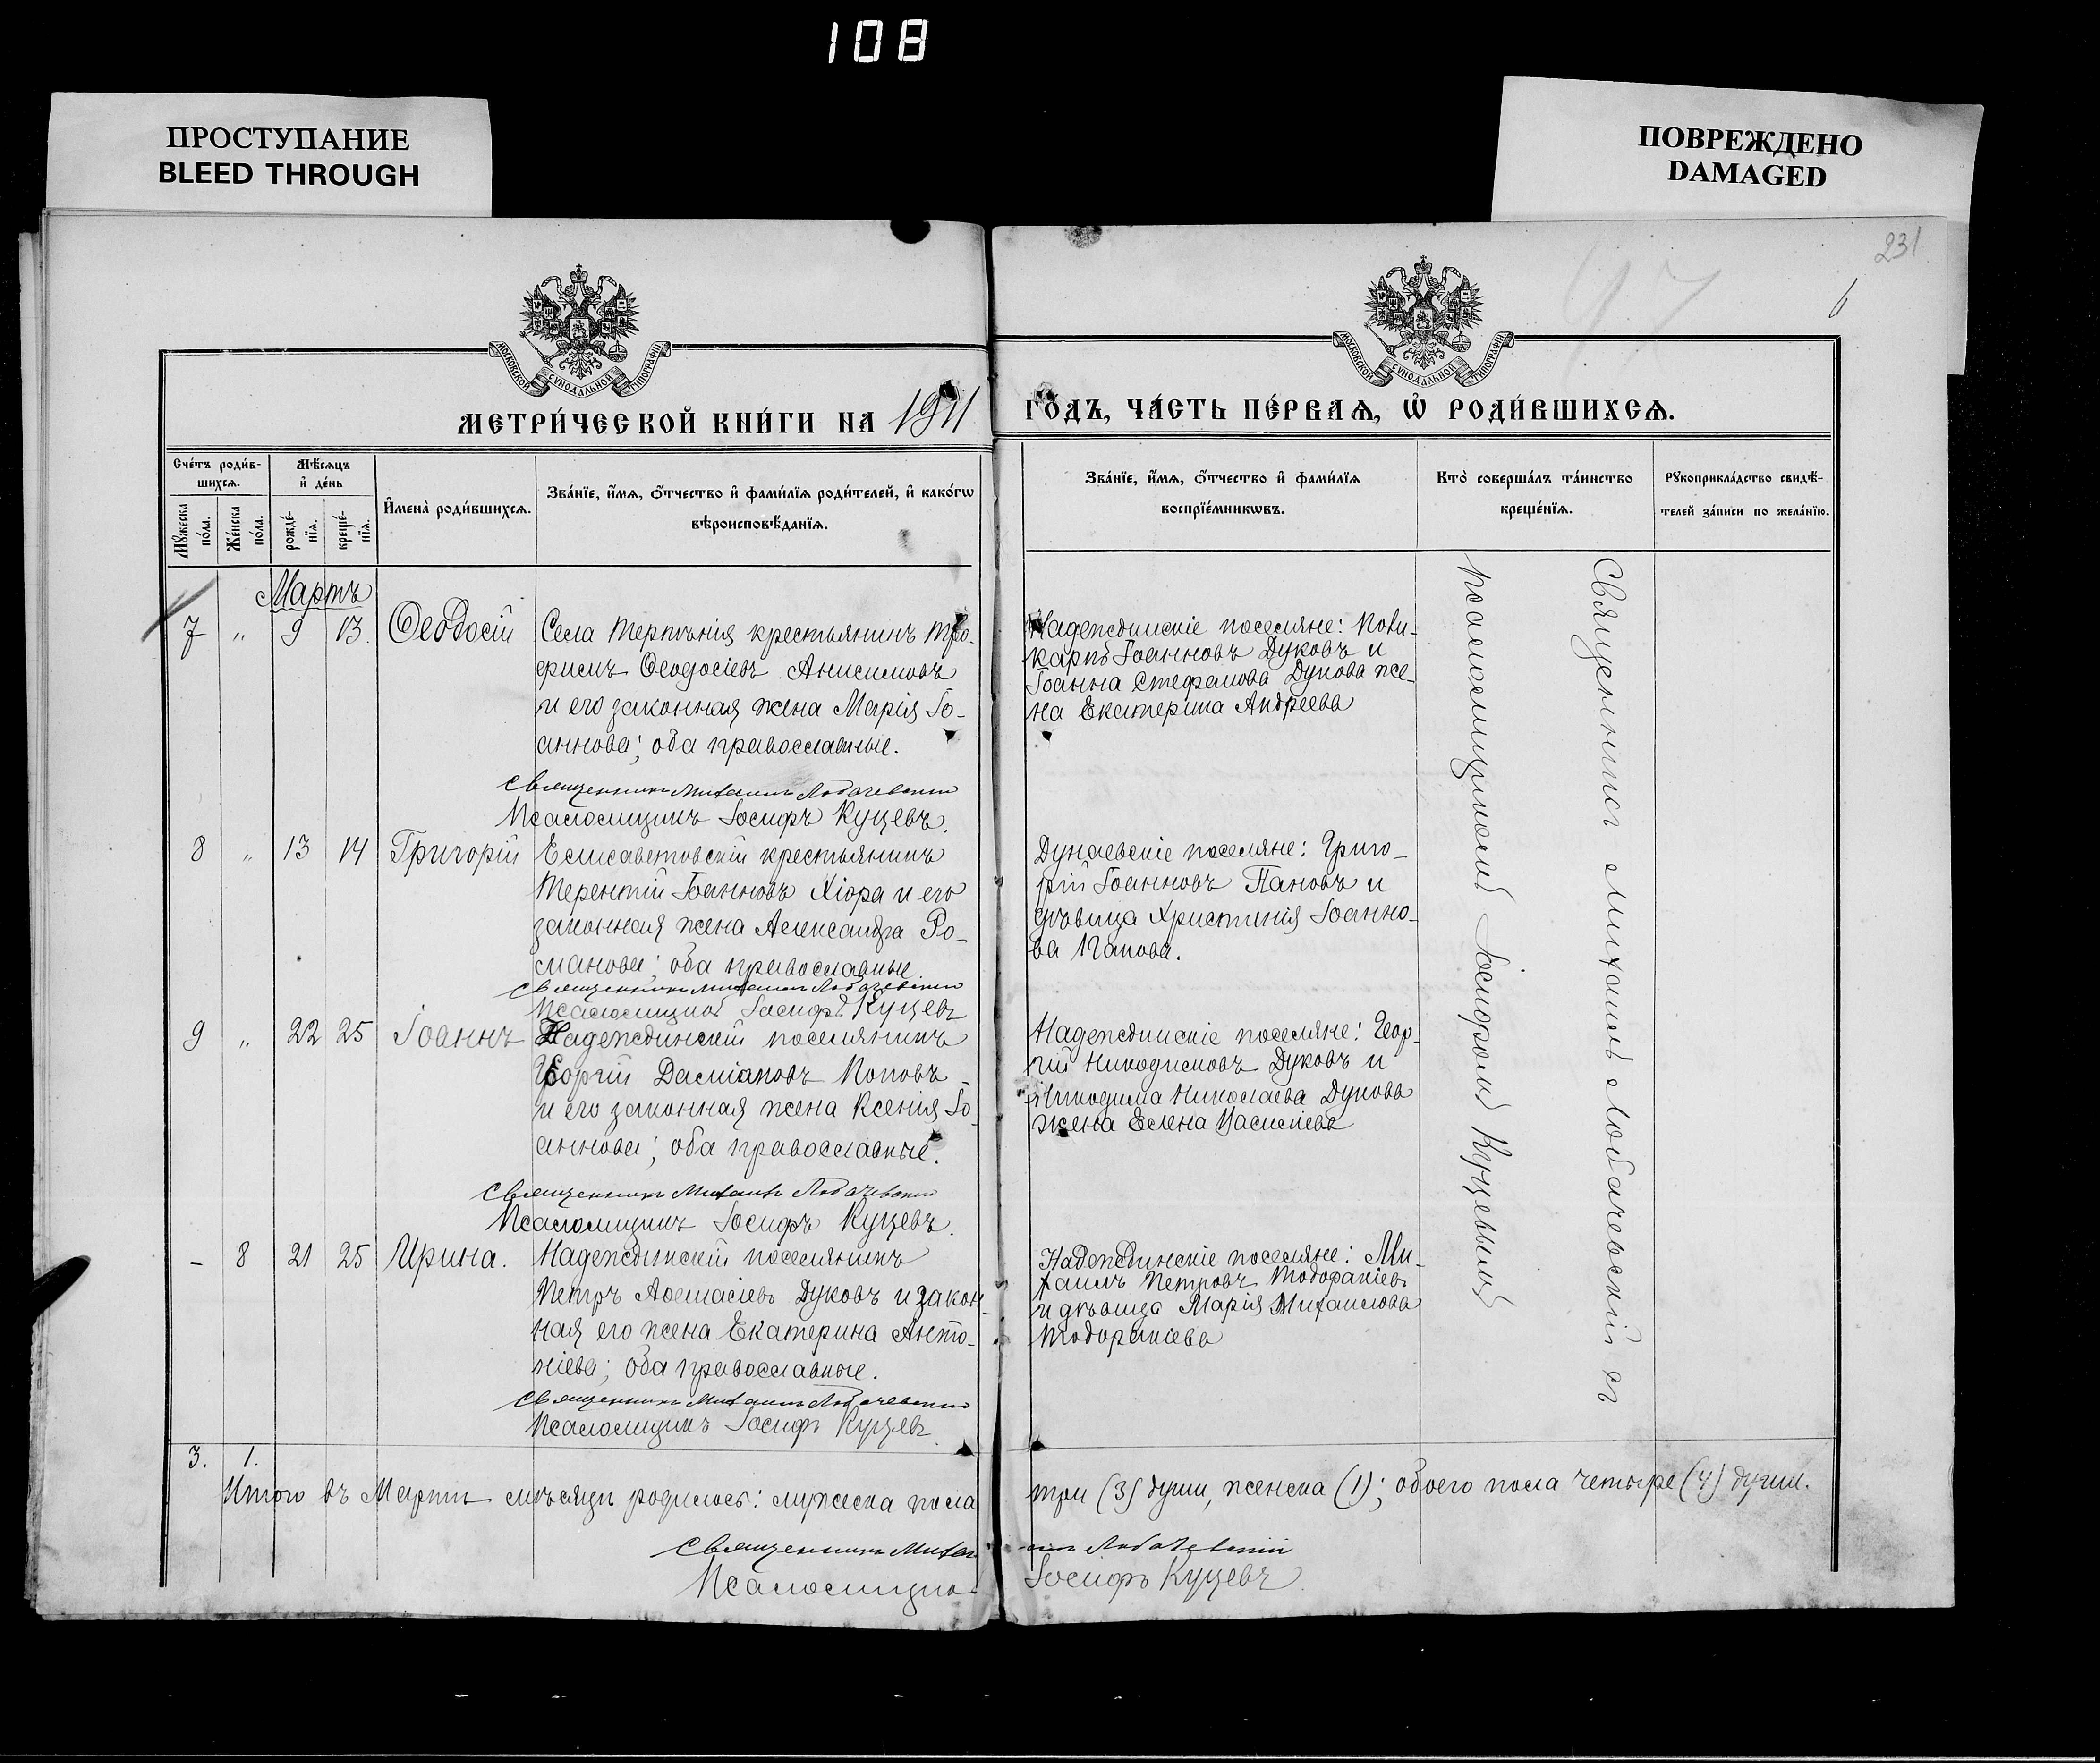 108
ПРОСТУПАНИЕ
BLEED THROUGH
ПОВРЕЖДЕНО
DAMAGED
231
97
6
МОСКОВСКОЙ СѴНОДАЛЬНОЙ ТИПОГРАФІИ
МОСКОВСКОЙ СѴНОДАЛЬНОЙ ТИПОГРАФІИ
МЕТРИ́ЧЕСКОЙ КНИ́ГИ НА 1911
ГО́ДЪ, ЧА́СТЬ ПЕ́РВАѦ, Ѡ҆ РОДИ́ВШИХСѦ.
Сче́тъ роди́в-
шихсѧ.
Мꙋ́жеска
по́ла.
Же́нска
по́ла.
Мѣ́сѧцъ
и҆ де́нь
рожде́-
нїѧ.
креще́-
нїѧ.
И҆мена̀ роди́вшихсѧ.
Зва́нїе, и҆́мѧ, ѻ҆́тчество и҆ фами́лїѧ роди́телей, и҆ како́гѡ
вѣроисповѣ́данїѧ.
Зва́нїе, и҆́мѧ, ѻ҆́тчество и҆ фами́лїѧ
воспрїе́мникѡвъ.
Кто̀ соверша́лъ та́инство
креще́нїѧ.
Рꙋкоприкла́дство свидѣ́-
телей за́писи по жела́нїю.
Мартъ
7 " 9 13. Ѳеодосій
Села Терпѣнія крестьянинъ Тро-
фимъ Ѳеодосіевъ Анисимовъ
и его законная жена Марія Іо-
аннова; оба православные.
Священникъ Михаилъ Лобачевскій
Псаломщикъ Іосифъ Куцевъ.
Надеждинскіе поселяне: Поли-
карпъ Іоанновъ Дуковъ и
Іоанна Стефанова Дукова же-
на Екатерина Андреева
8 " 13 14 Григорій
Елисаветовскій крестьянинъ
Терентій Іоанновъ Хіора и его
законная жена Александра Ро-
манова; оба православные.
Священникъ Михаилъ Лобачевскій
Псаломщикъ Іосифъ Куцевъ
Дунаевскіе поселяне: Григо-
рій Іоанновъ Пановъ и
дѣвица Христинія Іоанно-
ва Панова.
9 " 22 25 Іоаннъ
Надеждинскій поселянинъ
Георгій Даміановъ Поповъ
и его законная жена Ксенія Іо-
аннова; оба православные.
Священникъ Михаилъ Лобачевскій
Псаломщикъ Іосифъ Куцевъ.
Надеждинскіе поселяне: Геор-
гій Никодимовъ Дуковъ и
Никодима Николаева Дукова
жена Елена Василіева
- 8 21 25 Ирина.
Надеждинскій поселянинъ
Петръ Аѳанасіевъ Дуковъ и закон-
ная его жена Екатерина Анто-
ніева; оба православные.
Священникъ Михаилъ Лобачевскій
Псаломщикъ Іосифъ Куцевъ
Надеждинскіе поселяне: Ми-
хаилъ Петровъ Тодоракіевъ
и дѣвица Марія Михаилова
Тодоракіева
Священникъ Михаилъ Лобачевскій съ
псаломщикомъ Іосифомъ Куцевымъ
3. 1.
Итого въ Мартѣ мѣсяцѣ родилось: мужеска пола
три (3) души, женска (1); обоего пола четыре (4) души.
Священникъ Михаилъ Лобачевскій
Псаломщикъ Іосифъ Куцевъ.